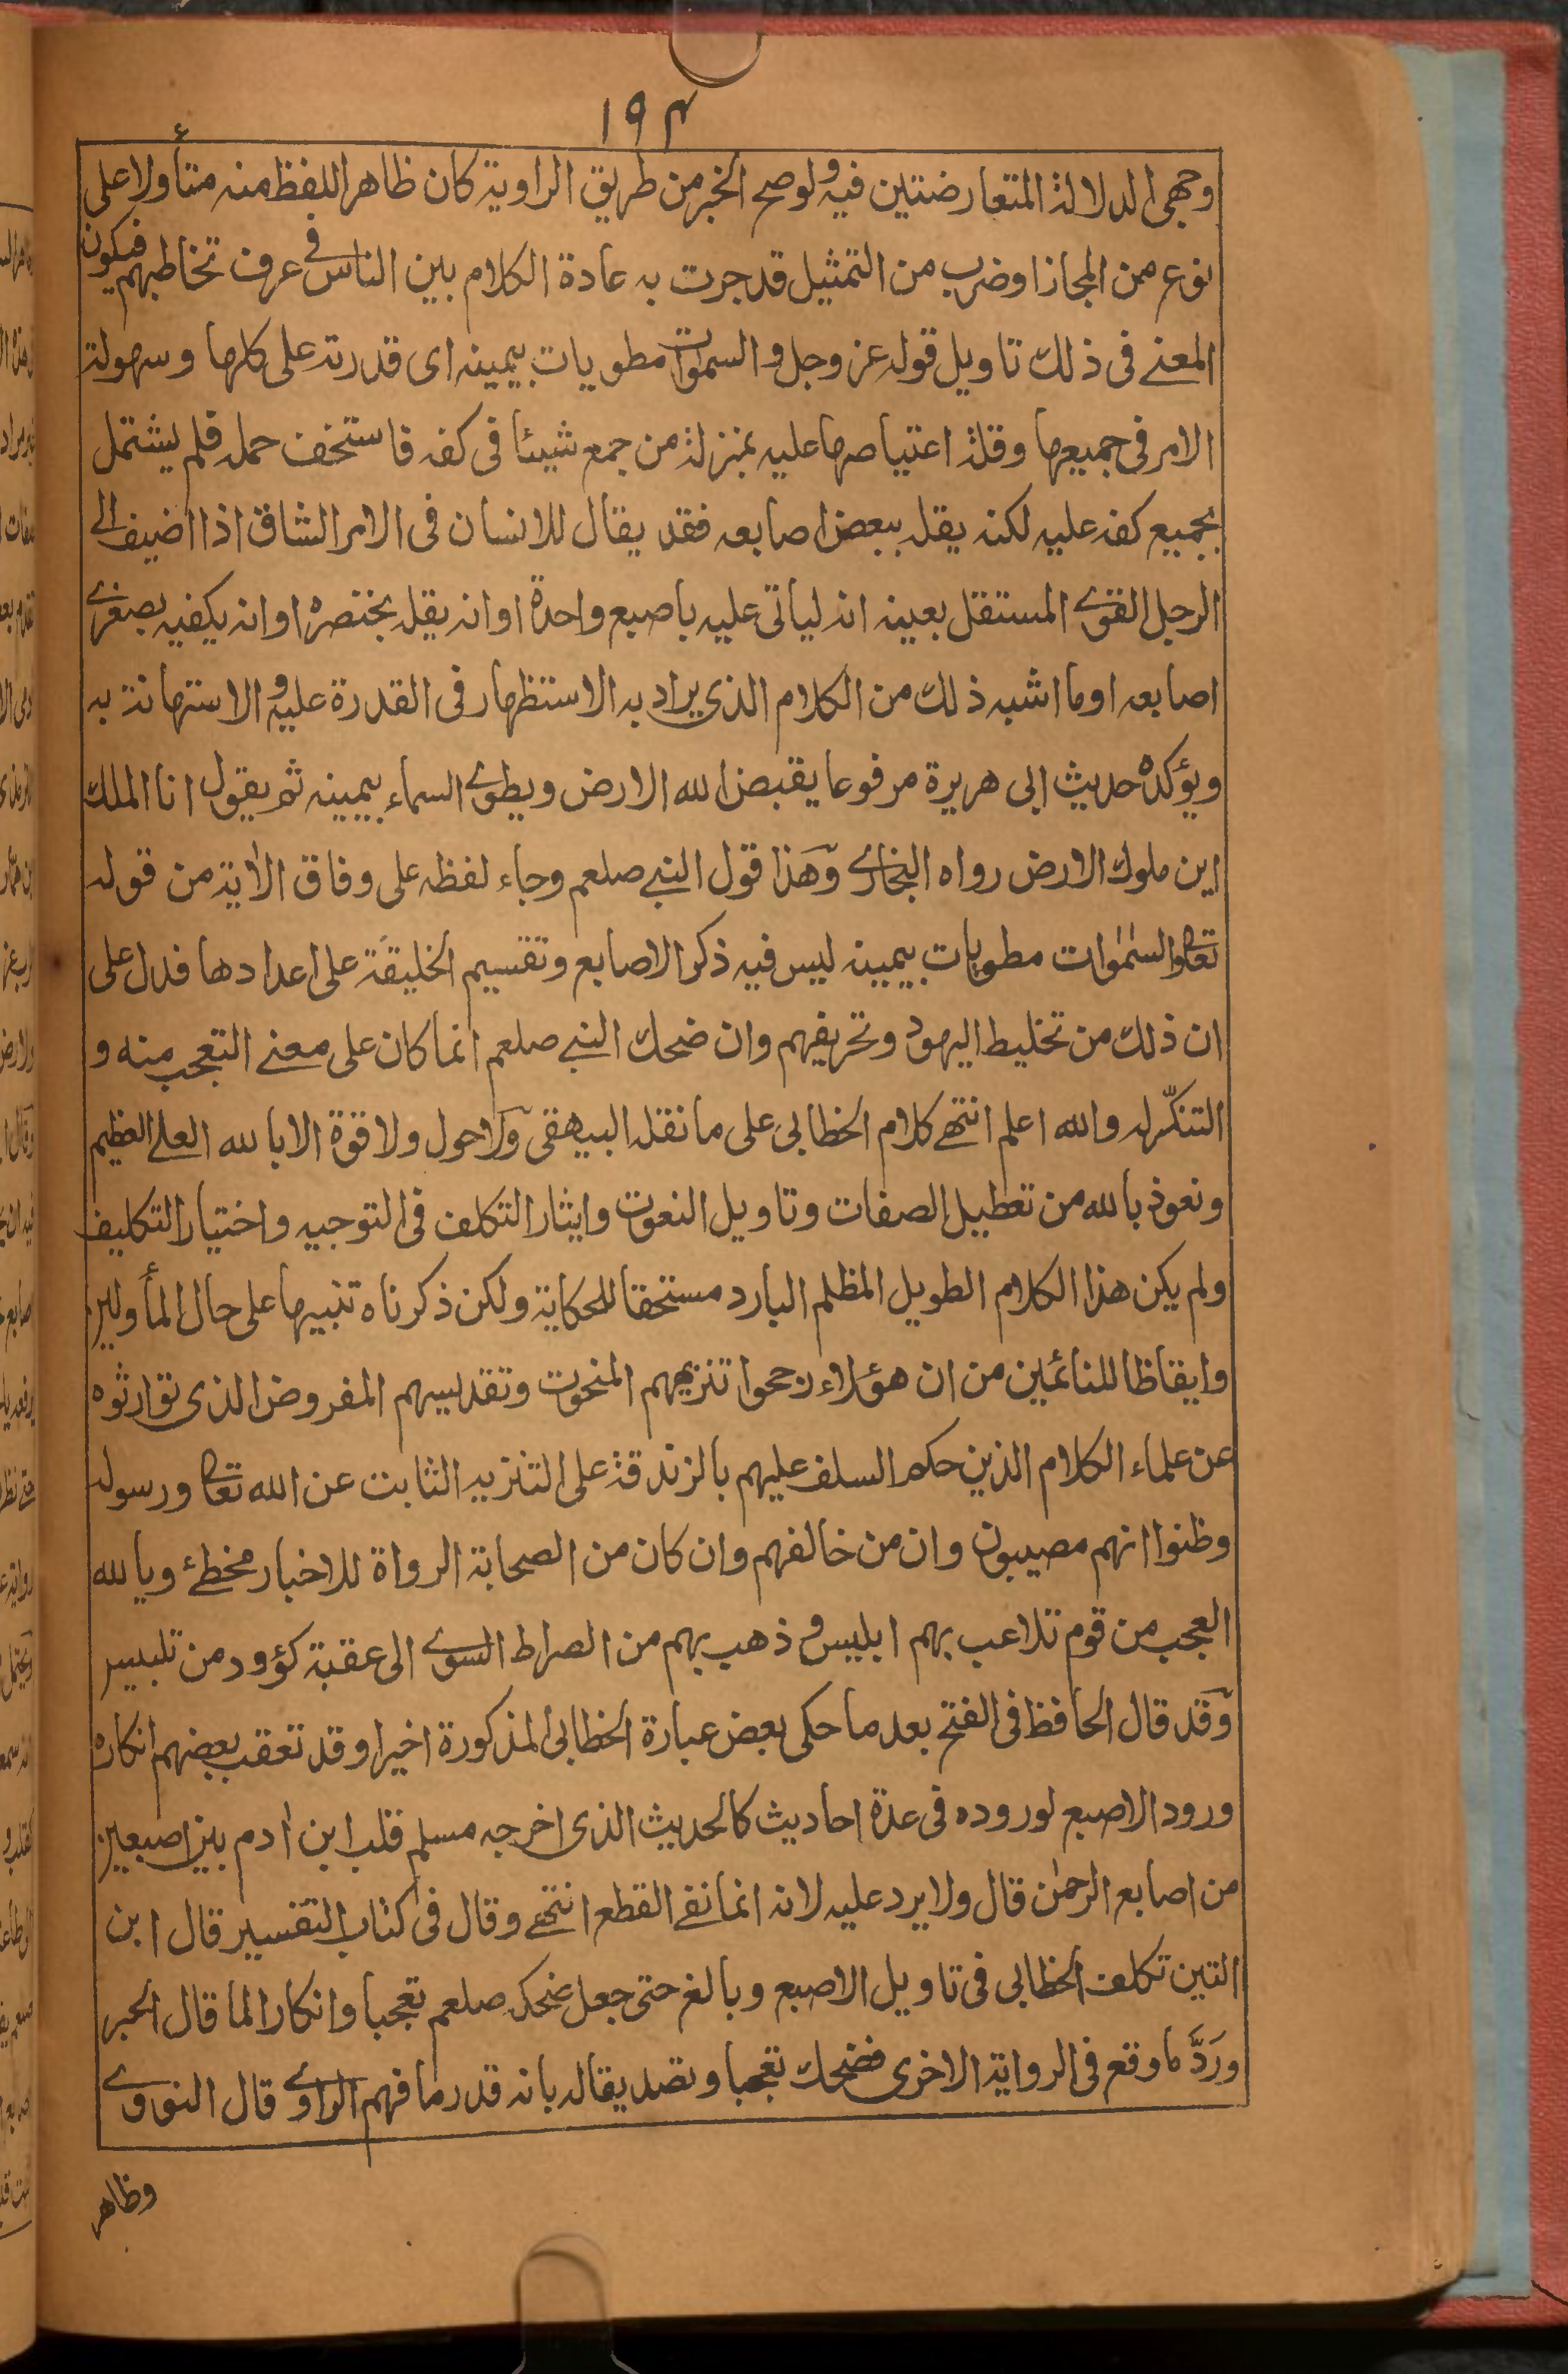 ١٩٤
وجهى الدلالة المتعارضتين فيه ولو صح الخبر من طريق الراوية كان ظاهر اللفظ منه متأولا على
نوع من المجاز او ضرب من التمثيل قد جرت به عادة الكلام بين الناس فى عرف تخاطبهم فيكون
المعنے فى ذلك تاويل قوله عز وجل والسموات مطويات بيمينه اى قدرته على كلها وسهولة
الامر فى جميعها وقلة اعتياصها عليه بمنزلة من جمع شيئا فى كفه فاستخف حمله فلم يشتمل
بجميع كفه عليه لكنه يقله ببعض اصابعه فقد يقال للانسان فى الامر الشاق اذا اضيف الى
الرجل القوے المستقل بعينه انه لياتى عليه باصبع واحدة او انه يقله بخنصره او انه يكفيه بصغرے
اصابعه او ما اشبه ذلك من الكلام الذى يراد به الاستظهار فى القدرة عليه والاستهانة به
ويؤكده حديث ابى هريرة مرفوعا يقبض الله الارض ويطوے السماء بيمينه ثم يقول انا الملك
اين ملوك الارض رواه البخارے وهذا قول النبے صلعم وجاء لفظه على وفاق الاية من قوله
تعالى والسمٰوات مطويات بيمينه ليس فيه ذكر الاصابع وتقسيم الخليقة على اعدادها فدل على
ان ذلك من تخليط اليهود وتحريفهم وان ضحك النبے صلعم انما كان على معنے التعجب منه و
التنكّر له والله اعلم انتهے كلام الخطابى على ما نقله البيهقى ولا حول ولا قوة الا بالله العلے العظيم
ونعوذ بالله من تعطيل الصفات وتاويل النعوت وايثار التكلف فى التوجيه واختيار التكليف
ولم يكن هذا الكلام الطويل المظلم البارد مستحقا للحكاية ولكن ذكرناه تنبيها على حال المأولين
وايقاظا للنائمين من ان هؤلاء رجحوا تنزيههم المنحوت وتقديسهم المفروض الذى توارثوه
عن علماء الكلام الذين حكم السلف عليهم بالزندقة على التنزيه الثابت عن الله تعالى ورسوله
وظنوا انهم مصيبون وان من خالفهم وان كان من الصحابة الرواة للاخبار مخطئ ويا لله
العجب من قوم تلاعب بهم ابليس وذهب بهم من الصراط السوے الى عقبة كؤود من تلبيس
وقد قال الحافظ فى الفتح بعد ما حكى بعض عبارة الخطابى المذكورة اخيرا وقد تعقب بعضهم انكاره
ورود الاصبع لوروده فى عدة احاديث كالحديث الذى اخرجه مسلم قلب ابن اٰدم بين اصبعين
من اصابع الرحمٰن قال ولا يرد عليه لانه انما نفے القطع انتهے وقال فى كتاب التفسير قال ابن
التين تكلف الخطابى فى تاويل الاصبع وبالغ حتى جعل ضحكه صلعم تعجبا وانكارا لما قال الحبر
ورَدَّ ما وقع فى الرواية الاخرى فضحك تعجبا وتصديقا له بانه قدر ما فهم الراوے قال النووے
وظاهر